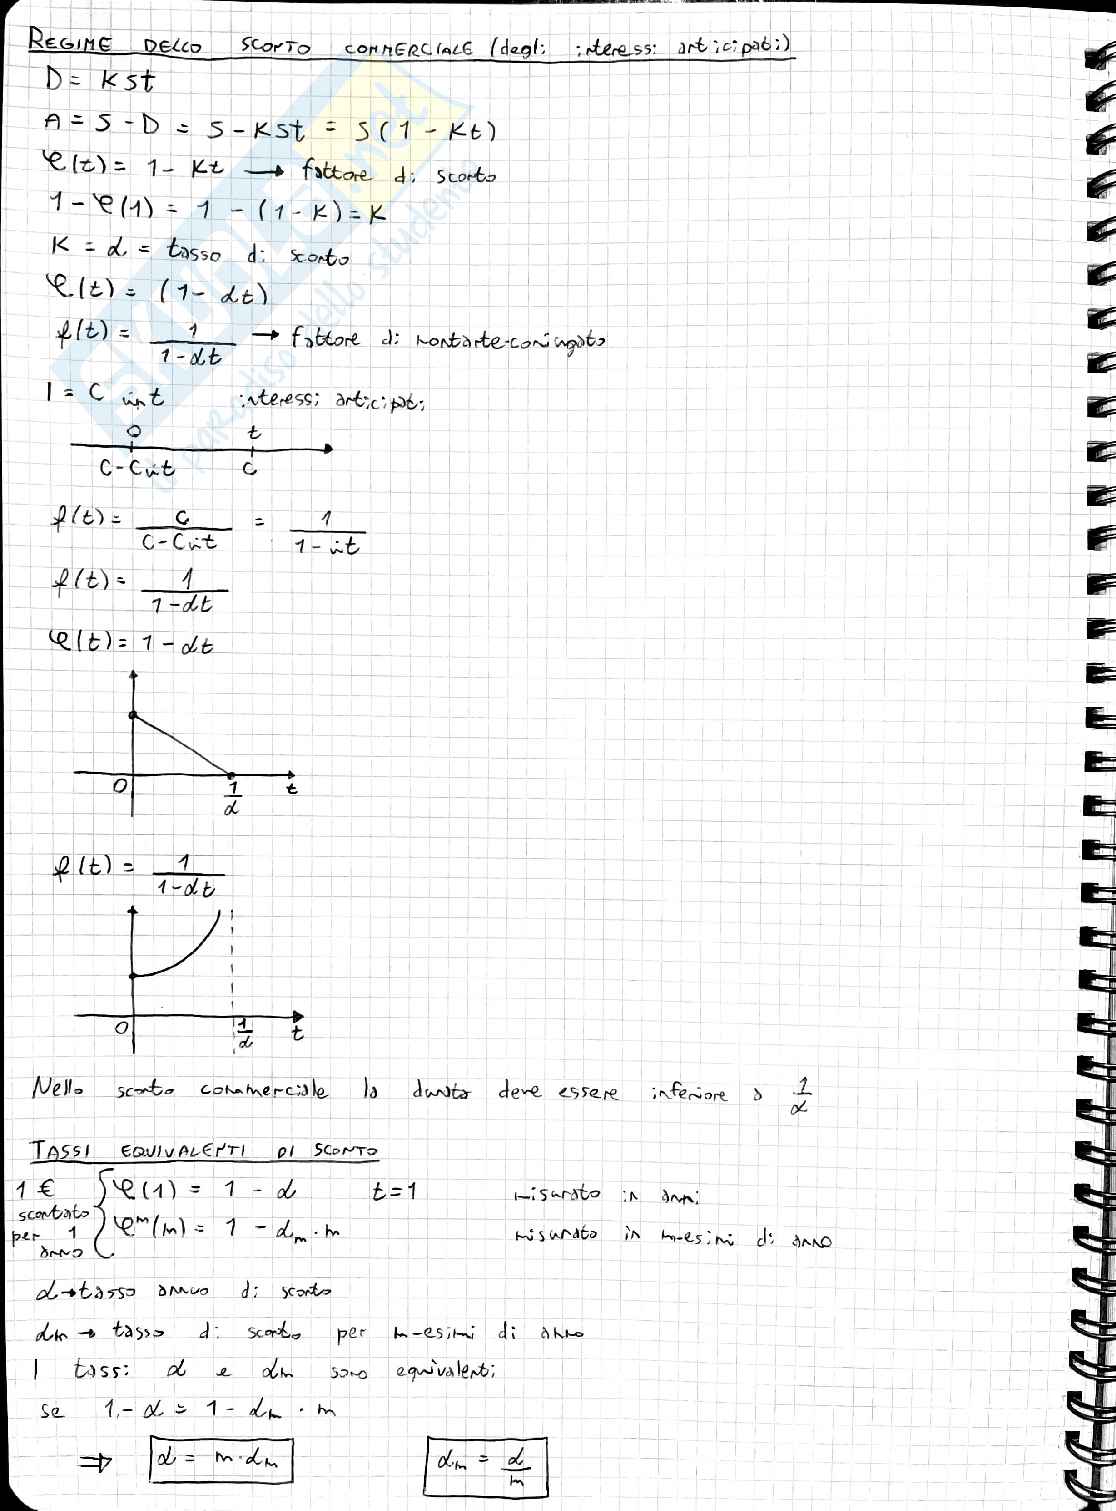 REGIME DELLO SCONTO COMMERCIALE (degli interessi anticipati)
D = Kst
A = S - D = S - KSt = S(1 - Kt)
φ(t) = 1 - Kt → fattore di sconto
1 - φ(1) = 1 - (1 - K) = K
K = d = tasso di sconto
φ(t) = (1 - dt)
f(t) = 1/(1 - dt) → fattore di montante coniugato
I = C in t interessi anticipati
0 t
C - Cit C
f(t) = C/(C - Cit) = 1/(1 - it)
f(t) = 1/(1 - dt)
φ(t) = 1 - dt
0 1/d t
f(t) = 1/(1 - dt)
0 1/d t
Nello sconto commerciale la durata deve essere inferiore a 1/d
TASSI EQUIVALENTI DI SCONTO
1 € scontato per 1 anno
φ(1) = 1 - d t = 1 misurato in anni
φᵐ(m) = 1 - dₘ · m misurato in m-esimi di anno
d → tasso annuo di sconto
dₘ → tasso di sconto per m-esimi di anno
I tassi d e dₘ sono equivalenti
se 1 - d = 1 - dₘ · m
⇒ d = m · dₘ dₘ = d/m
SKUOLA.net
il paradiso dello studente